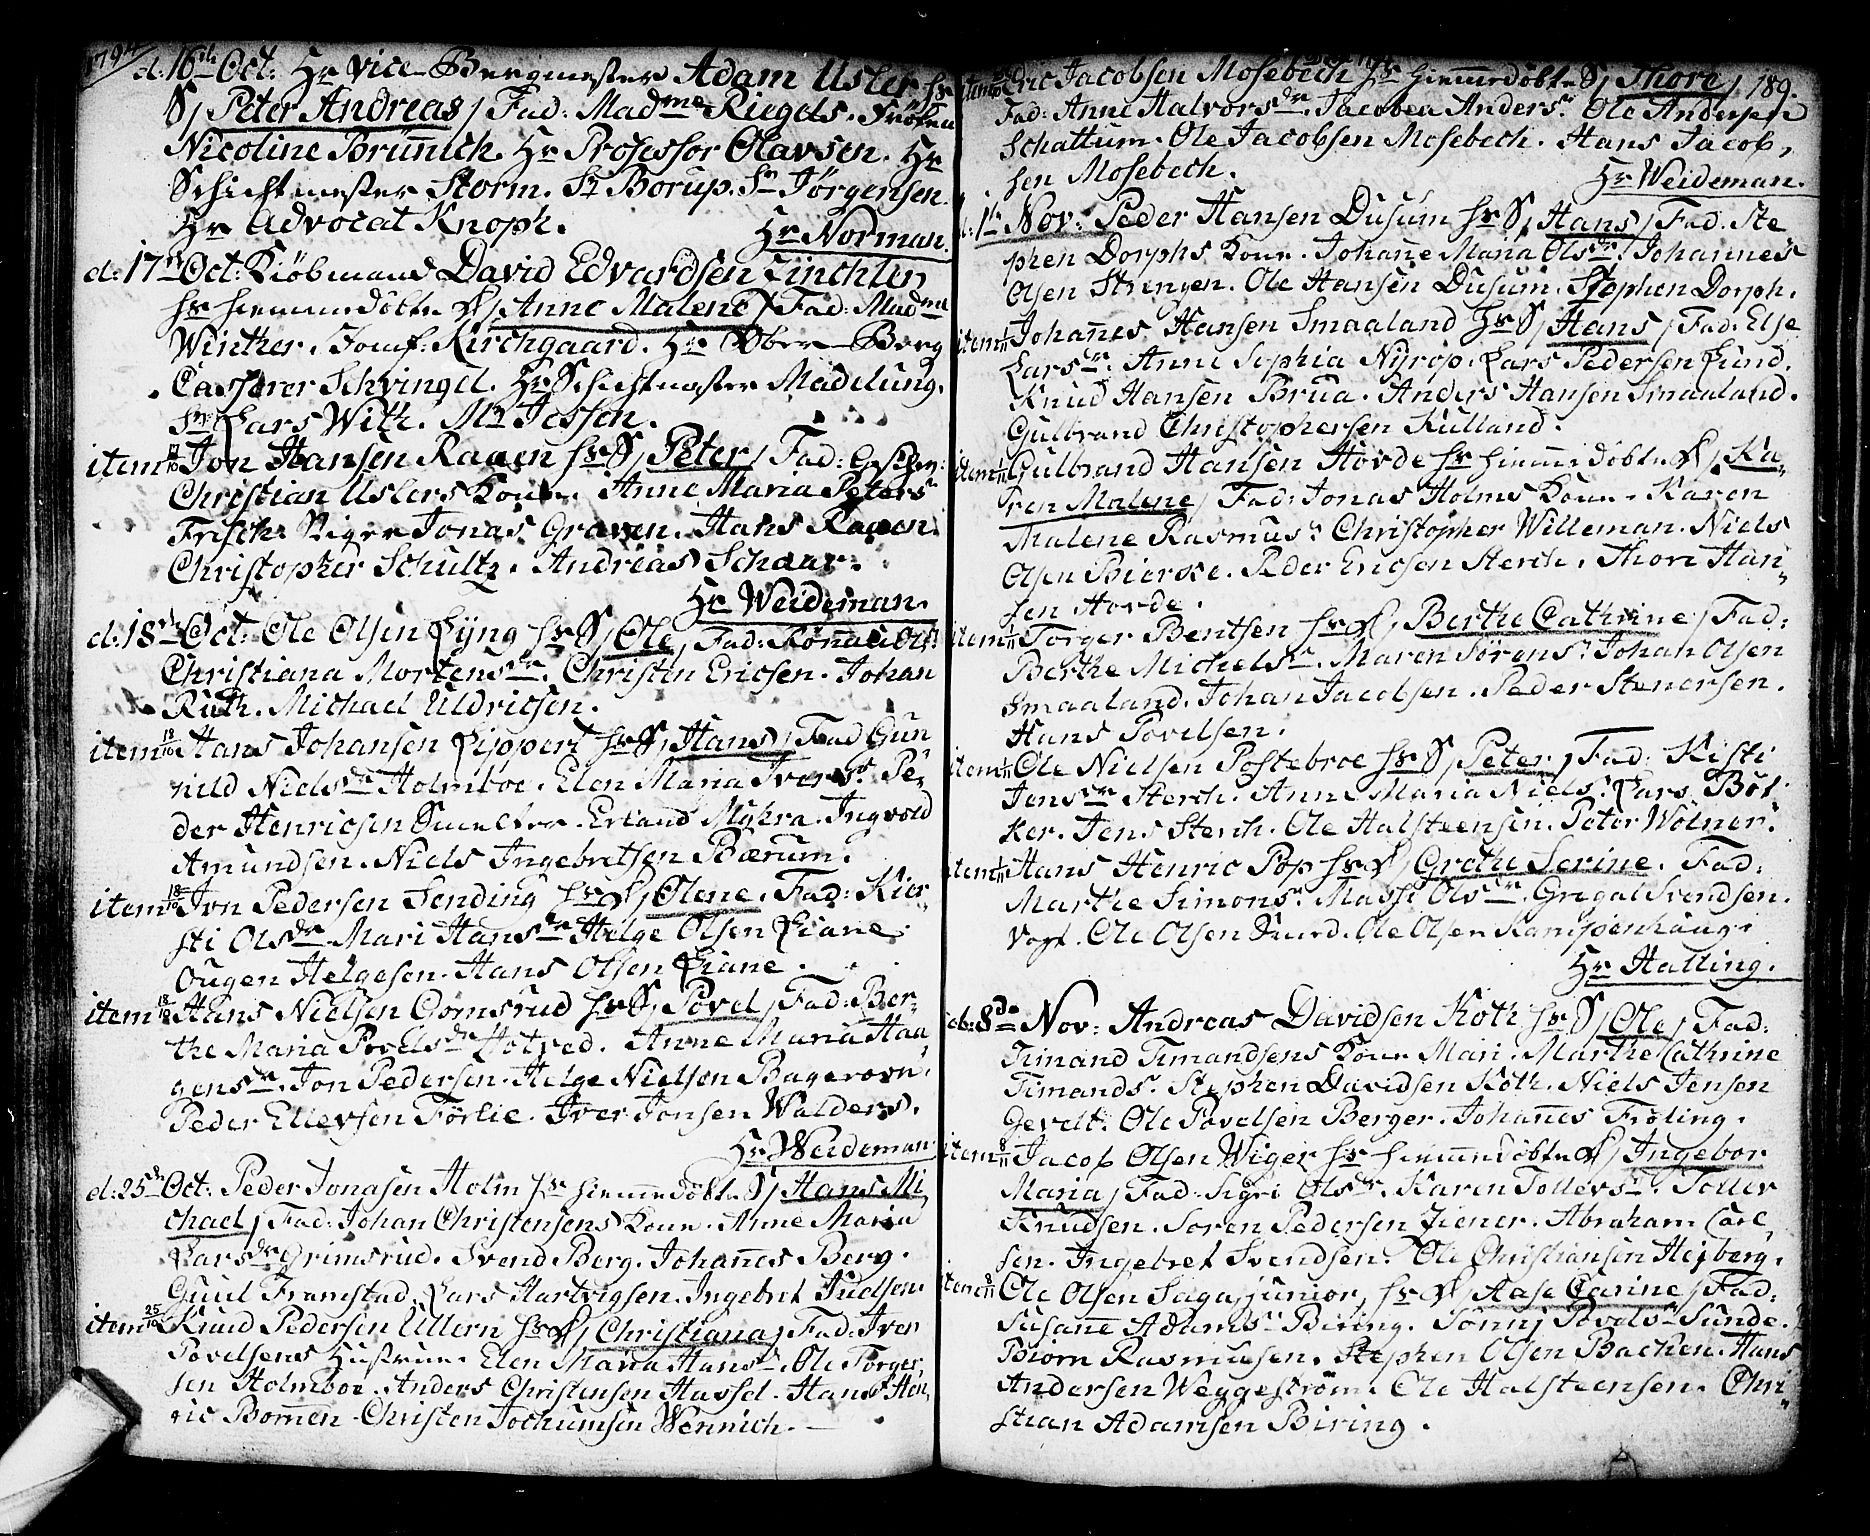 1794
d: 16de Oct: Hr Vice-Bergmester Adam Usler hs
S, Peter Andreas, Fad: Madme Riegels. Frøken
Nicoline Brünnich. Hr Professor Olavsen. Hr
Schichtmester Storm. Sr Borup. Sr Jörgensen.
Hr Advocat Knoph.
Hr Norman.
d: 17de Oct: Kiöbmand David Edvardsen
hs hiemmedöbte D, Anne Malene, Fad: Madme
Winther. Jomf: Kirchgaard. Hr Ober-Berg
Casserer Schvingel. Hr Schichtmester Madelung.
Sr Lars With. Mr Jessen.
item 17/10 Jon Hansen Raaen hs S, Peter, Fad: Geschw:
Christian Uslers Kone. Anne Maria Peters
Frisch. Stiger Jonas Graven. Hans Raaen.
Christopher Schultz. Andreas Schaar.
Hr Weideman.
d: 18de Oct: Ole Olsen Lyng hs S, Ole, Fad: Rönau Ols:
Christiana Mortensdr. Christen Ericsen. Johan
Ruth. Michael Uldricsen.
item 18/10 Hans Johansen Lippert hs S, Hans, Fad Gun
nild Nielsdr Holmboe. Elen Maria Ivers: Pe-
der Henricsen Smelter. Erland Myhra. Ingvold
Amundsen. Niels Ingebretsen Bærum.
item 18/10 Jon Pedersen Sending hs D, Olene. Fad: Kier-
sti Olsdr Mari Hansdr Helge Olsen Liane.
Ougen Helgesen. Hans Olsen Liane.
item 18/10 Hans Nielsen Gomsrud hs S, Povel, Fad: Ber-
the Maria Povelsdr Hotved. Anne Maria Haa,
gensdr. Jon Pedersen. Helge Nielsen Bagerovn.
Peder Ellevsen Förlie. Iver Jonsen Walders.
Hr Weideman.
d: 25de Oct: Peder Jonasen Holm hs hiemmedöbte S, Hans Mi
chael, Fad: Johan Christensens Kone. Anne Maria
Larsdr Grimsrud. Svend Berg. Johannes Berg.
Guul Framstad. Lars Hartvigsen. Ingebret Juelsen.
item 25/10 Knud Pedersen Ullern hs D, Christiana, Fad: Iver
Povelsens Hustrue. Elen Maria Hans: Ole Törger,
sen Holmboe. Anders Christensen Hassel. Hans Hen,
ric Bomen. Christen Jochumsen Wennich.
item Eric Jacobsen Mosebech hs hiemmedöbte S, Thore, 189.
Fad: Anne Halvorsdr. Jacobea Anders: Ole Andersen
Schattum. Ole Jacobsen Mosebech. Hans Jacob,
sen Mosebech.
Hr Weideman.
d: 1te Nov: Peder Hansen Dusum hs S, Hans, Fad: Ste
phen Dorphs Kone. Johane Maria Olsdr. Johannes
Olsen Strengen. Ole Hansen Dusum. Stephen Dorph.
item 1/11 Johannes Hansen Smaaland hs S, Hans, Fad: Else
Larsdr. Anne Sophia Nyrop. Lars Pedersen Lund.
Knud Hansen Brua. Anders Hansen Smaaland.
Gulbrand Christophersen Kulland.
item 1/11 Gulbrand Hansen Hovde hs hiemmedöbte D, Ka-
ren Malene, Fad: Jonas Holms Kone. Karen
Malene Rasmus: Christopher Willeman. Niels
Olsen Bierke. Peder Ericsen Sterch. Thore Han,
sen Hovde.
item 1/11 Torger Bentsen hs D, Berthe Cathrine, Fad:
Berthe Michelsdr. Maren Sörens: Johan Olsen
Smaaland. Johan Jacobsen. Peder Stenersen.
Hans Povelsen.
item 1/11 Ole Nielsen Postebroe hs S, Peter, Fad: Kisti
Jensdr Sterch. Anne Maria Niels: Lars Böt
ker. Jens Sterch. Ole Halsteensen. Peter Wölner.
item 1/11 Hans Henric Pop hs D, Grethe Serine. Fad:
Marthe Simons: Massi Olsdr. Gregal Svendsen.
Vogt. Ole Olsen Ruud. Ole Olsen Kampenhaug.
Hr Halling.
d: 8de Nov: Andreas Davidsen Koth hs S, Ole, Fad:
Timand Timandsens Kone Mari. Marthe Cathrine
Timands: Stephen Davidsen Koth. Niels Jensen
Gevelt. Ole Povelsen Berger. Johannes Fröling.
item 8/11 Jacob Olsen Wiger hs hiemmedöbte D, Ingebor
Maria, Fad: Sigri Olsdr. Karen Tollevs: Tollev
Knudsen. Soren Pedersen Ziener. Abraham Carl,
sen. Ingebret Svendsen. Ole Christiansen Hejberg.
item 8/11 Ole Olsen Saga, junior, hs D, Aase Carine, Fad:
Susane Adams: Biring. Sönni Povels: Sunde.
Biorn Rasmussen. Stephen Olsen Bachen. Hans
Andersen Weggeström. Ole Halsteensen. Chri,
stian Adamsen Biring.